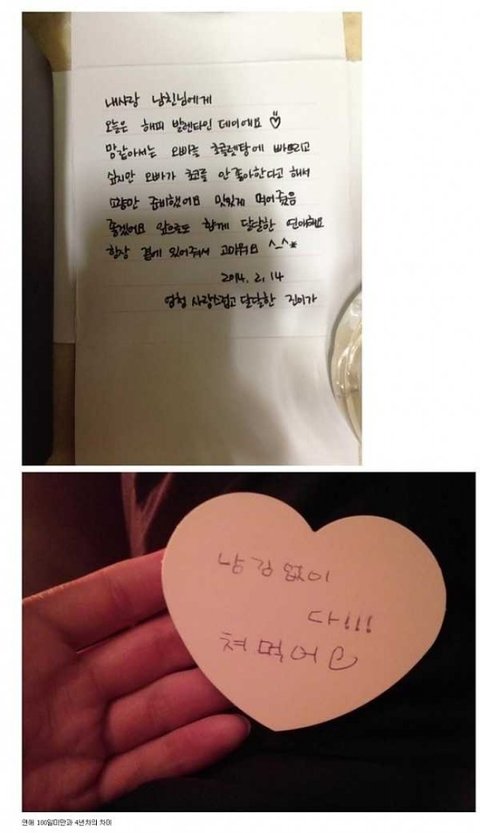 내사랑 남친님에게
오늘은 해피 발렌타인 데이에요 ♡
맘같아서는 오빠를 초콜렛탕에 빠뜨리고
싶지만 오빠가 초코를 안 좋아한다고 해서
소량만 준비했어요 맛있게 먹어줬음
좋겠어요 앞으로도 함께 달달한 연애해요
항상 곁에 있어줘서 고마워요 ^_^*
2014. 2. 14
엄청 사랑스럽고 달달한 진이가
남김없이
다!!!
쳐먹어♡
연애 100일미만과 4년차의 차이